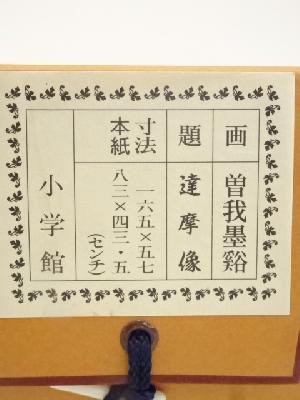 画 曽我墨谿
題 達摩像
寸法 一六五×五七
本紙 八三×四三・五
(センチ)
小学館